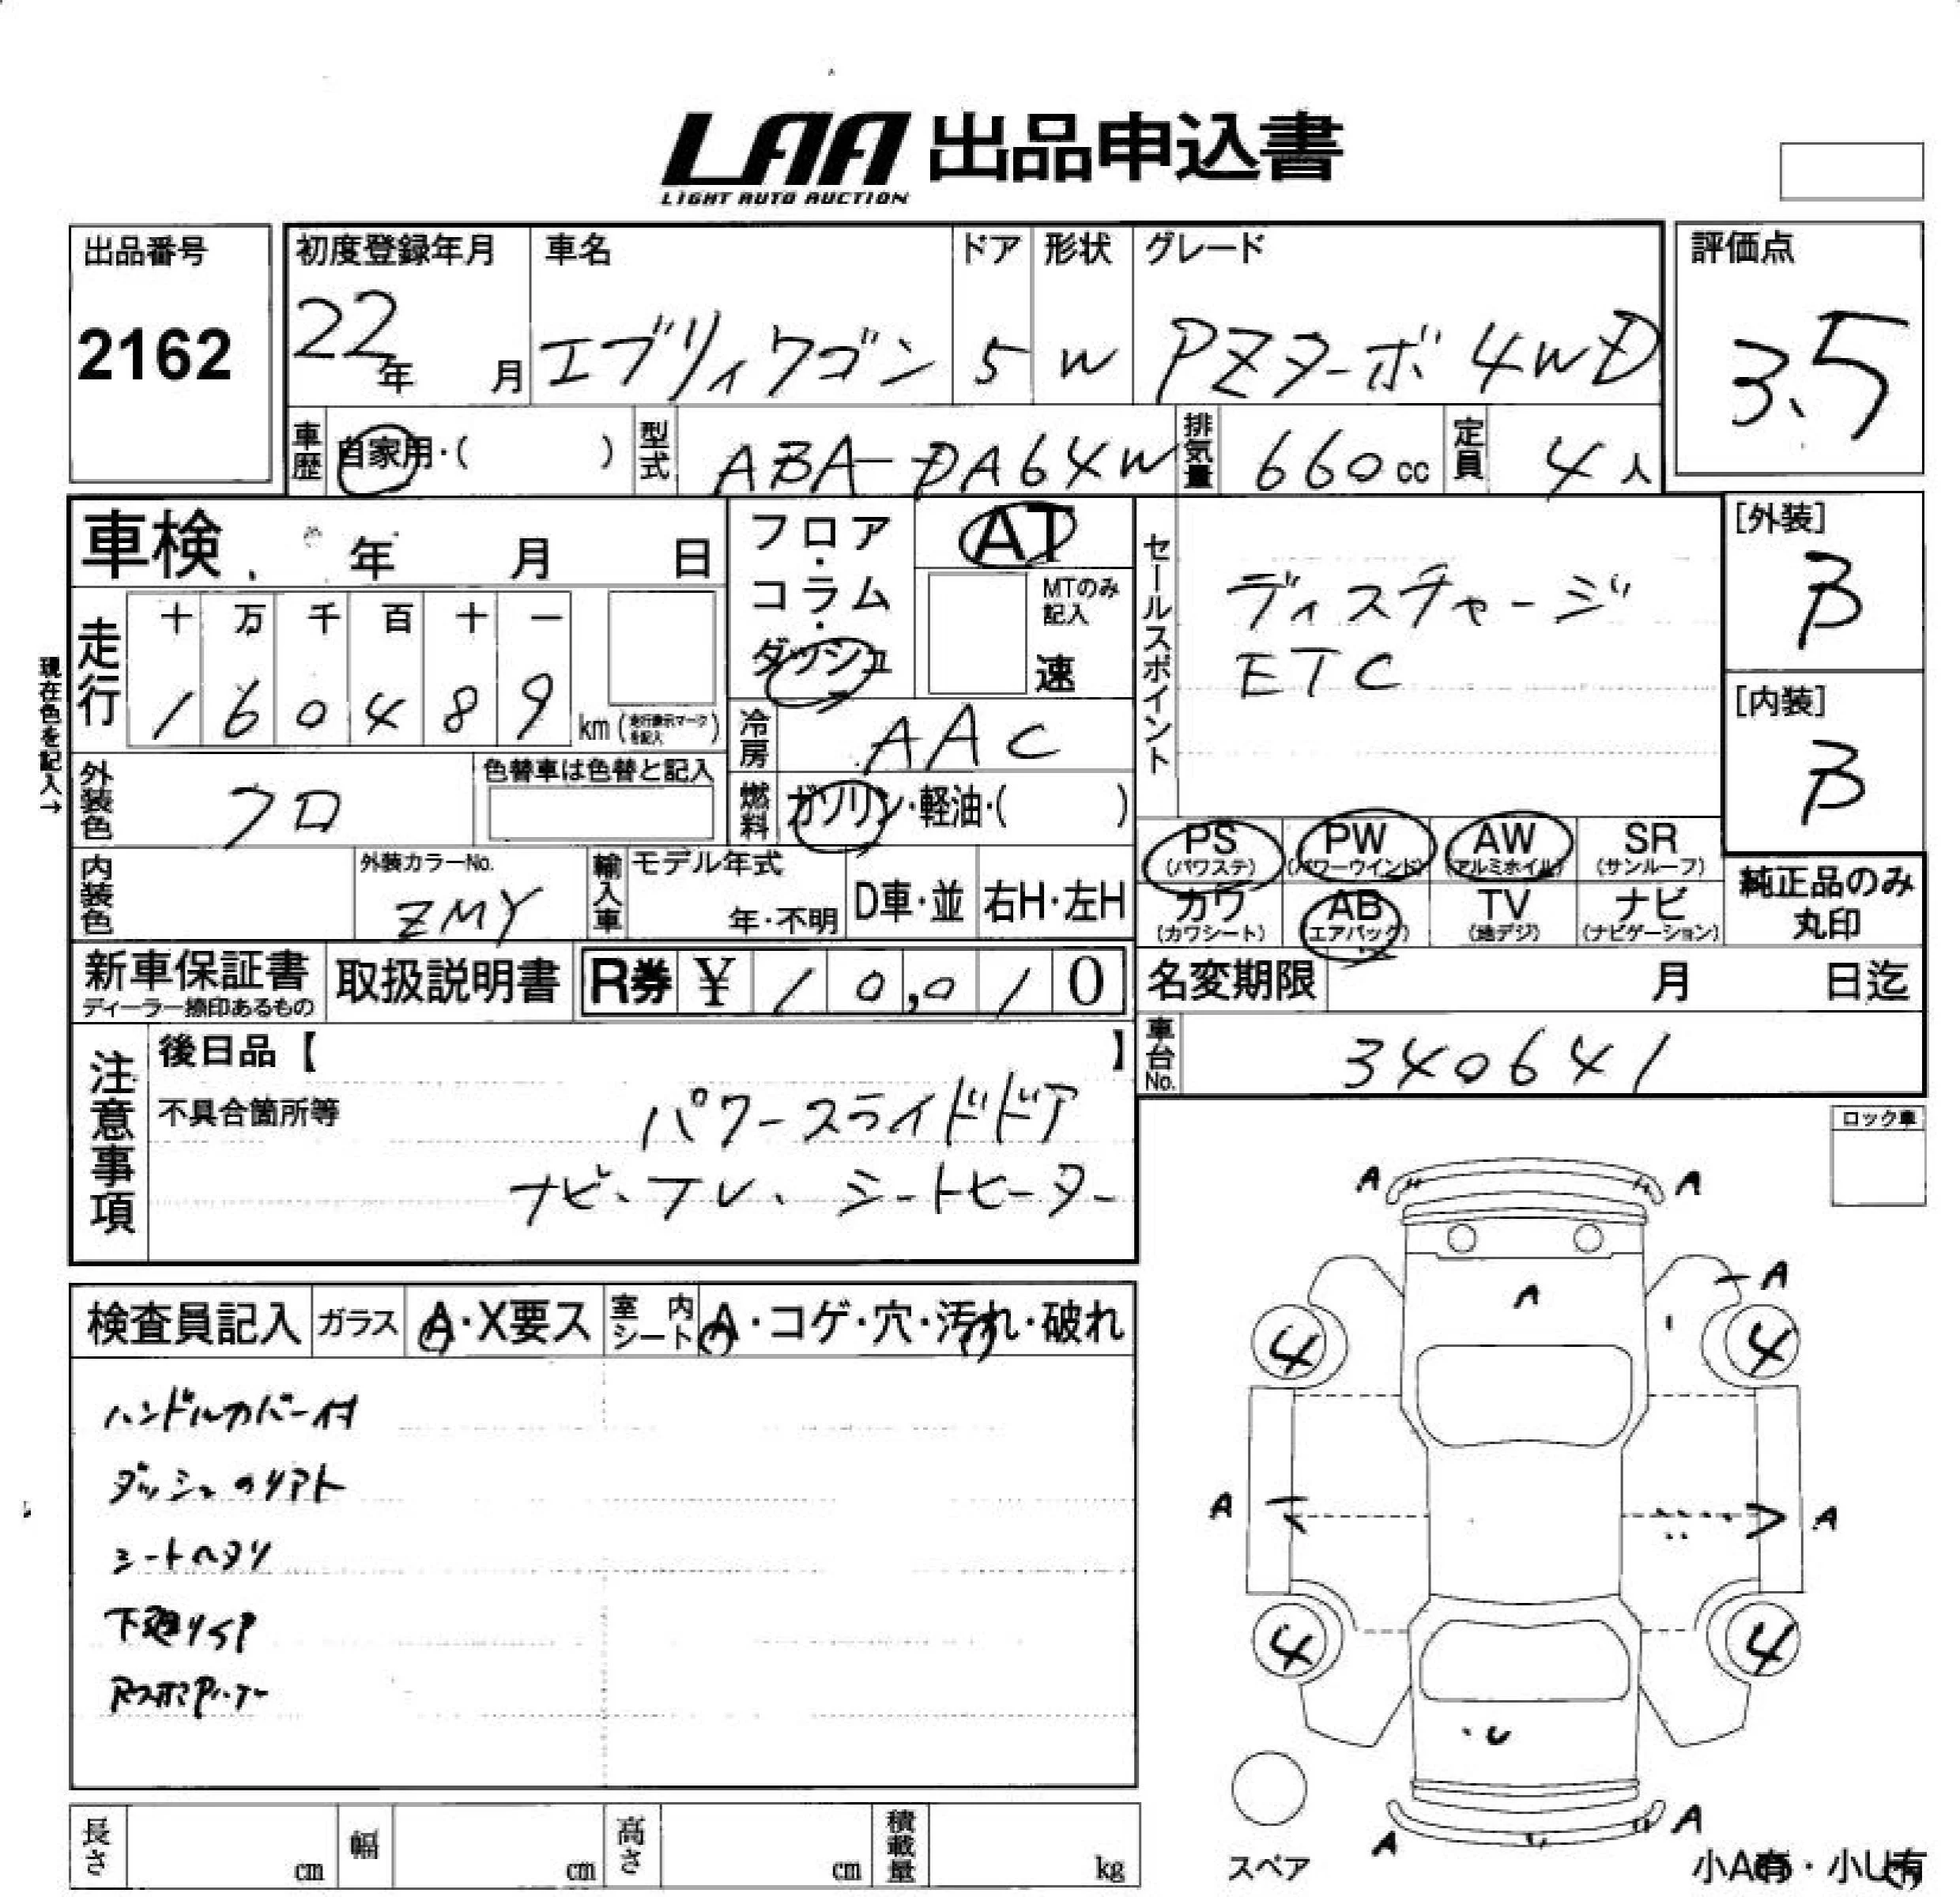 LAA 出品申込書
LIGHT AUTO AUCTION
出品番号
2162
初度登録年月
22年 月
車名
エブリィワゴン
ドア
5
形状
W
グレード
PZターボ 4WD
評価点
3.5
車歴 自家用・( )
型式 ABA-DA64W
排気量 660cc
定員 4人
車検 年 月 日
フロア・コラム・ダッシュ
AT
MTのみ記入
速
セールスポイント
ディスチャージ
ETC
[外装]
B
[内装]
B
現在色を記入→
走行
十 万 千 百 十 一
1 6 0 4 8 9 km (走行表示マークを記入)
冷房 AAC
外装色 クロ
色替車は色替と記入
燃料 ガソリン・軽油・( )
PS (パワステ)
PW (パワーウインド)
AW (アルミホイル)
SR (サンルーフ)
カワ (カワシート)
AB (エアバック)
TV (地デジ)
ナビ (ナビゲーション)
純正品のみ
丸印
内装色
外装カラーNo.
ZMY
輸入車
モデル年式
年・不明
D車・並
右H・左H
新車保証書
ディーラー捺印あるもの
取扱説明書
R券 ¥ 1 0,0 1 0
名変期限 月 日迄
車台No. 340641
注意事項
後日品【 】
不具合箇所等
パワースライドドア
ナビ、テレ、シートヒーター
ロック車
検査員記入
ガラス A・X要ス
室内シート A・コゲ・穴・汚れ・破れ
ハンドルカバー付
シートヘタリ
A A
A
A
4 4
A A
4 4
U
A
A
スペア
小A有・小U有
長さ cm
幅 cm
高さ cm
積載量 kg